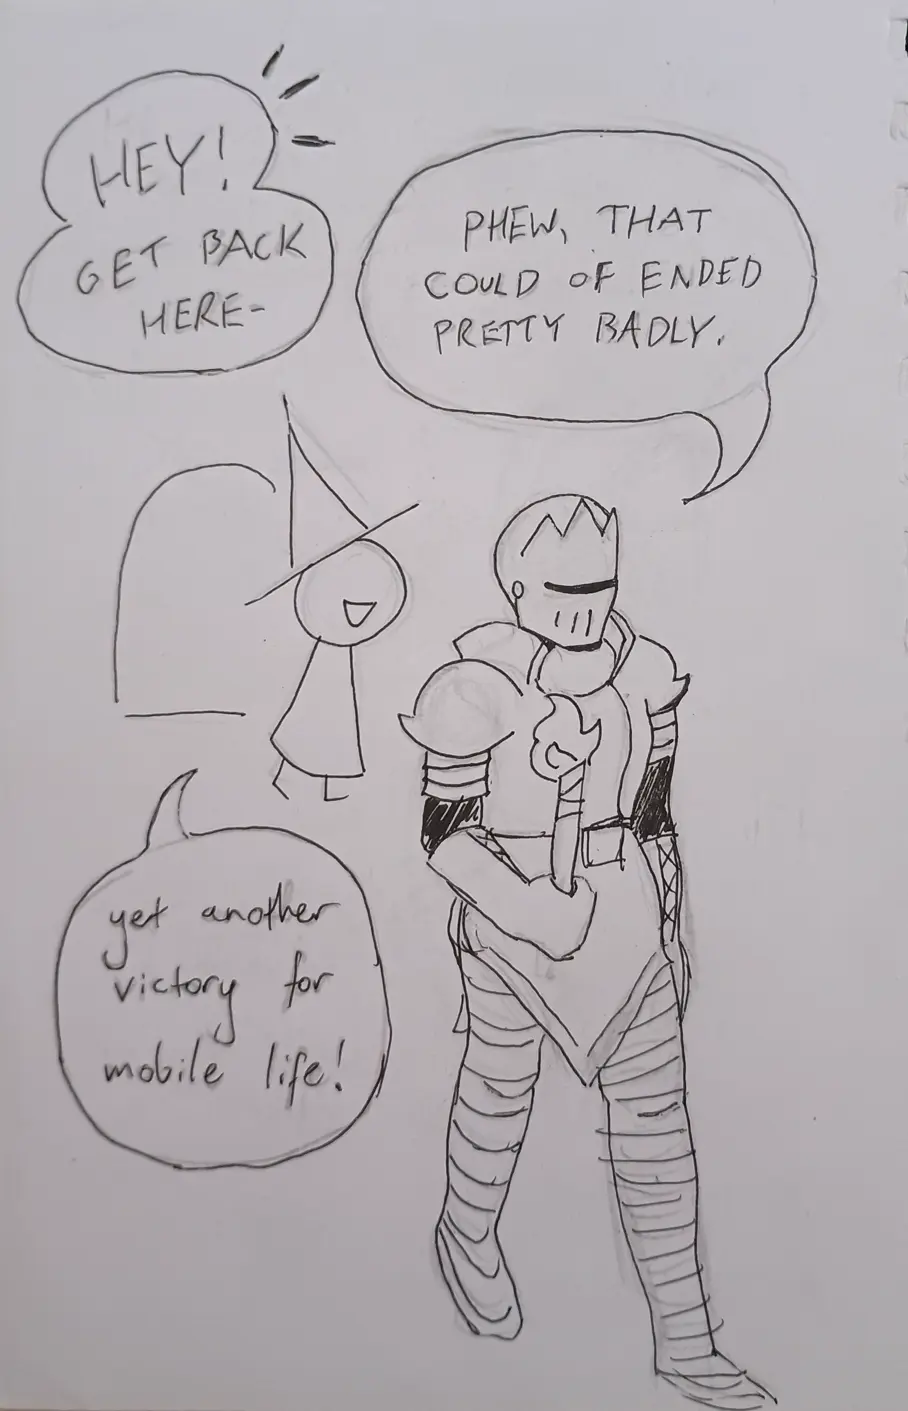 HEY!
GET BACK
HERE-
PHEW, THAT
COULD OF ENDED
PRETTY BADLY.
yet another
victory for
mobile life!